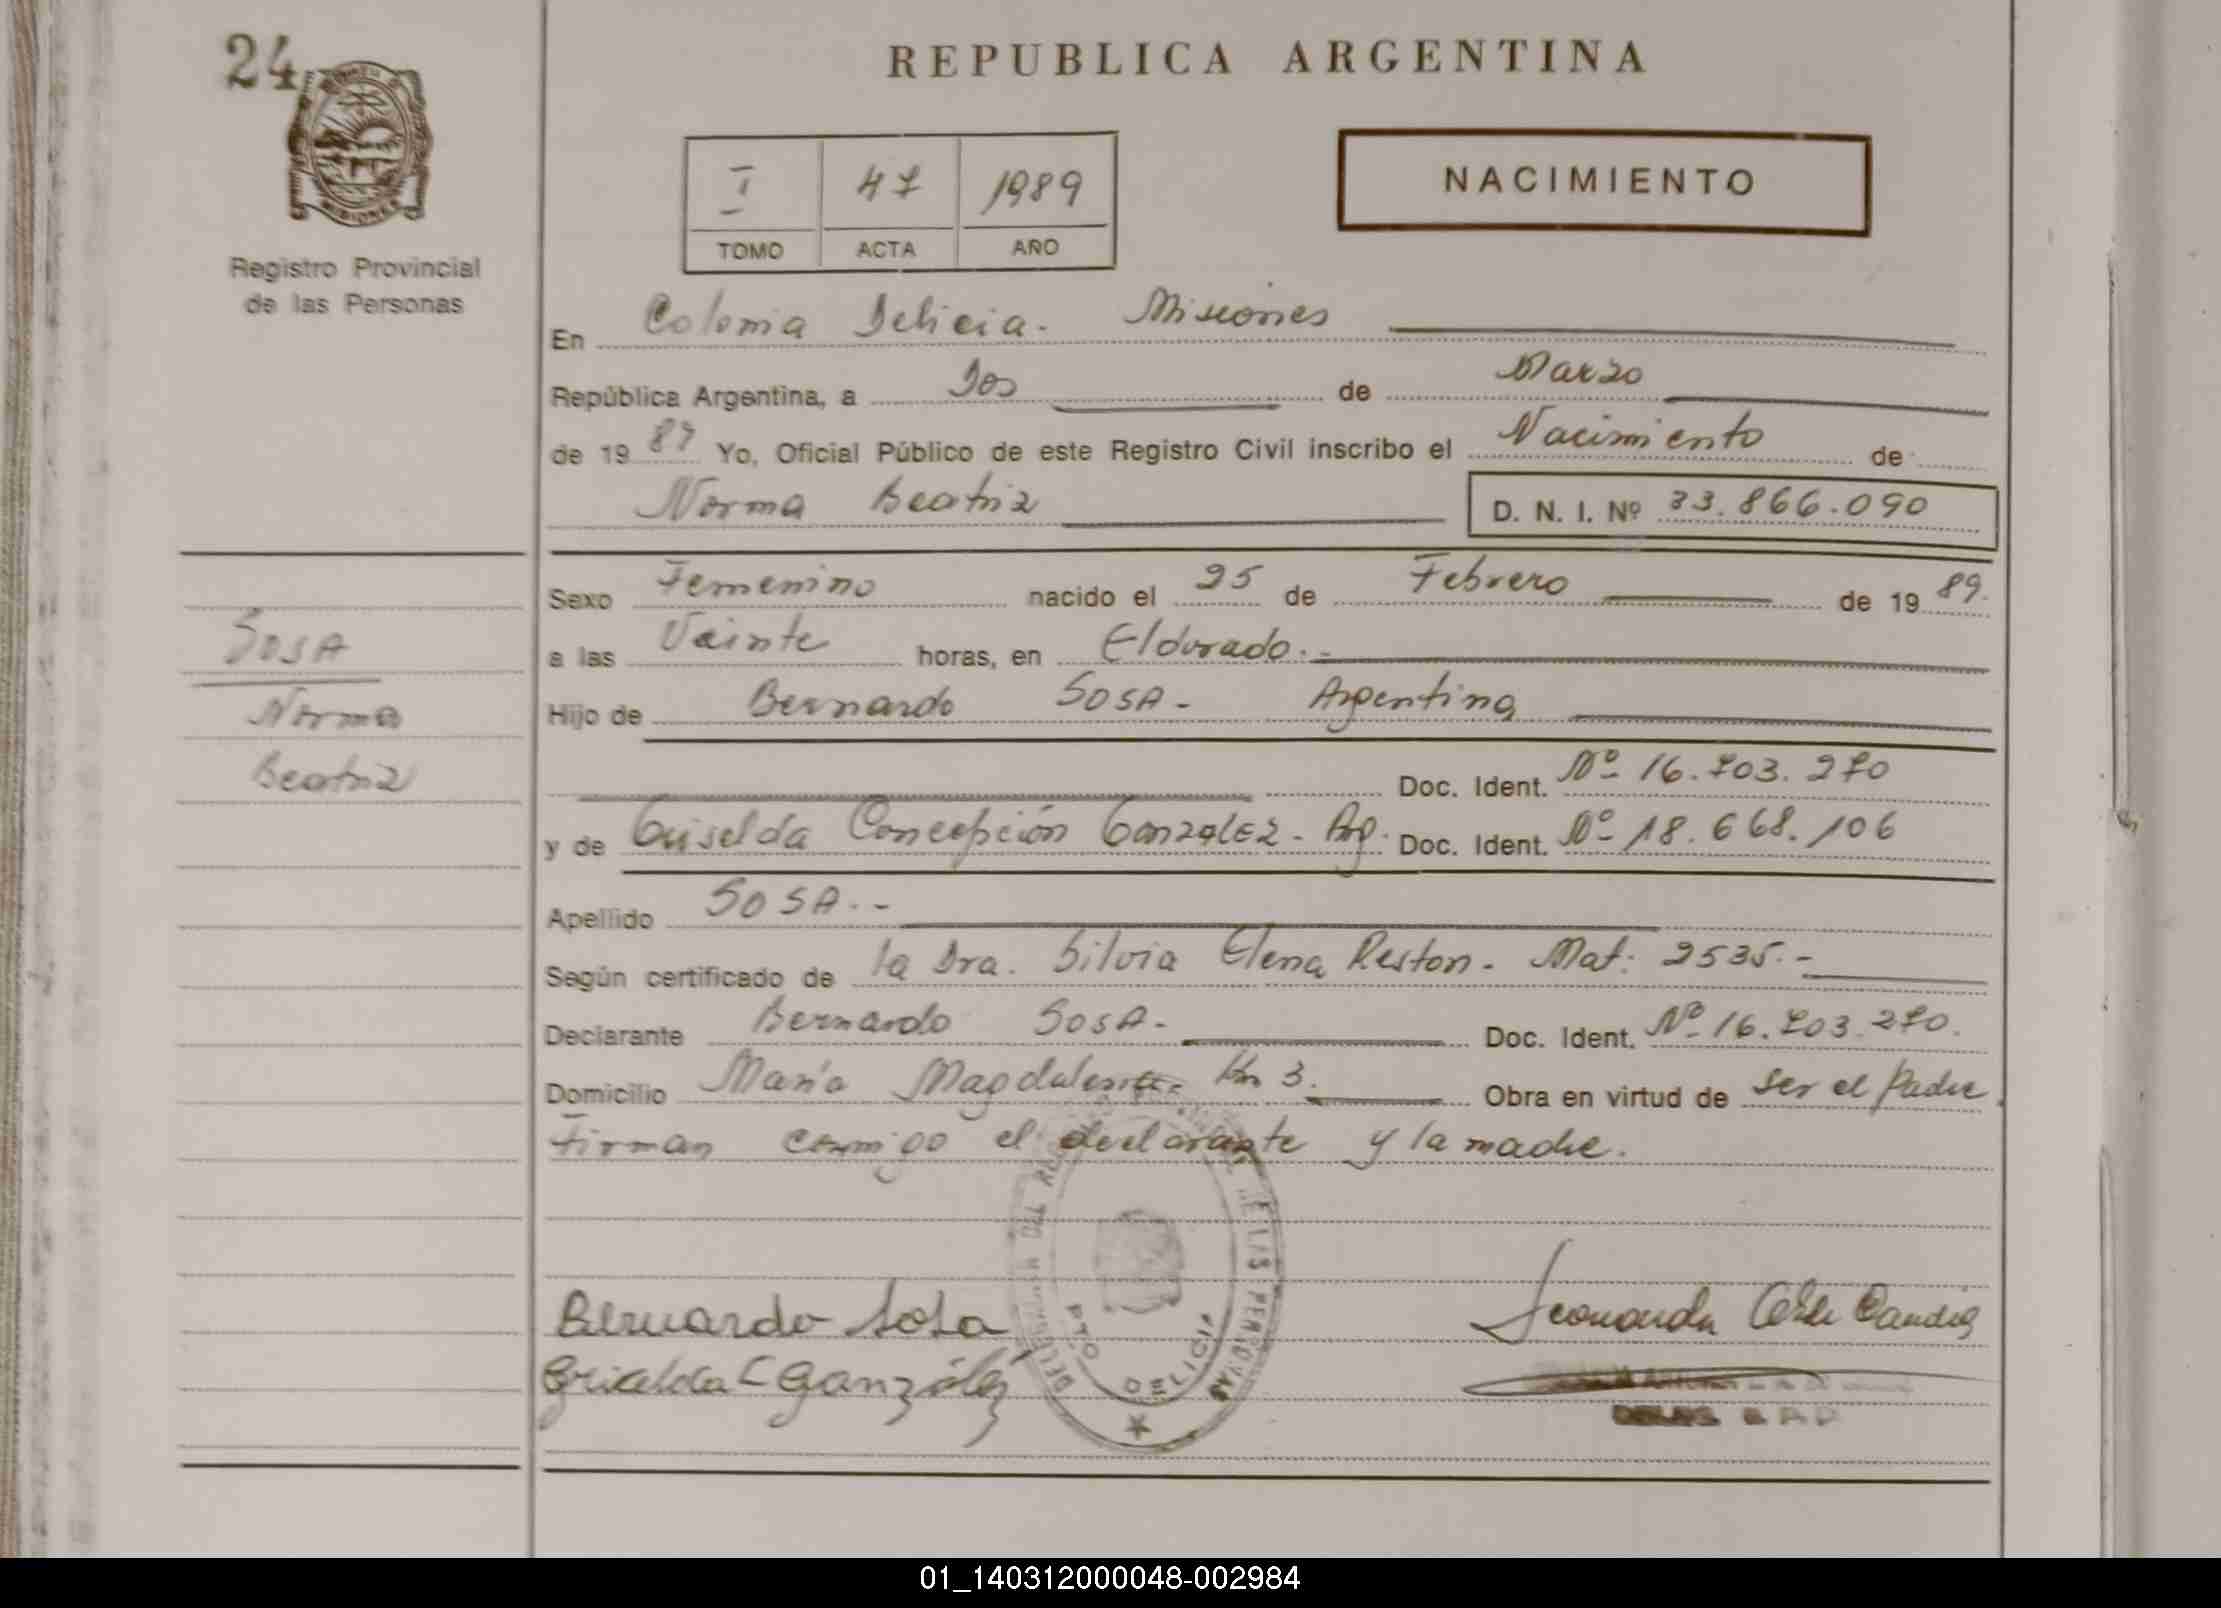 24
REPUBLICA ARGENTINA
NACIMIENTO
I 47 1989
TOMO ACTA AÑO
Registro Provincial
de las Personas
En Colonia Delicia. Misiones
República Argentina, a Dos de Marzo
de 1989 Yo, Oficial Público de este Registro Civil inscribo el Nacimiento de
Norma Beatriz D. N. I. Nº 33.866.090
Sexo Femenino nacido el 25 de Febrero de 1989.
a las Veinte horas, en Eldorado.-
Hijo de Bernardo SOSA - Argentina
Doc. Ident. Nº 16.703.270
y de Griselda Concepción GonzalEz - Arg. Doc. Ident. Nº 18.668.106
Apellido SOSA.-
Según certificado de la Dra. Silvia Elena Reston. Mat: 2535.-
Declarante Bernardo SosA- Doc. Ident. Nº 16.703.270.
Domicilio María Magdalena - Km 3. Obra en virtud de ser el Padre.
Firman conmigo el declarante y la madre.
SOSA
Norma
Beatriz
Bernardo Sosa
Griselda C González
01_140312000048-002984